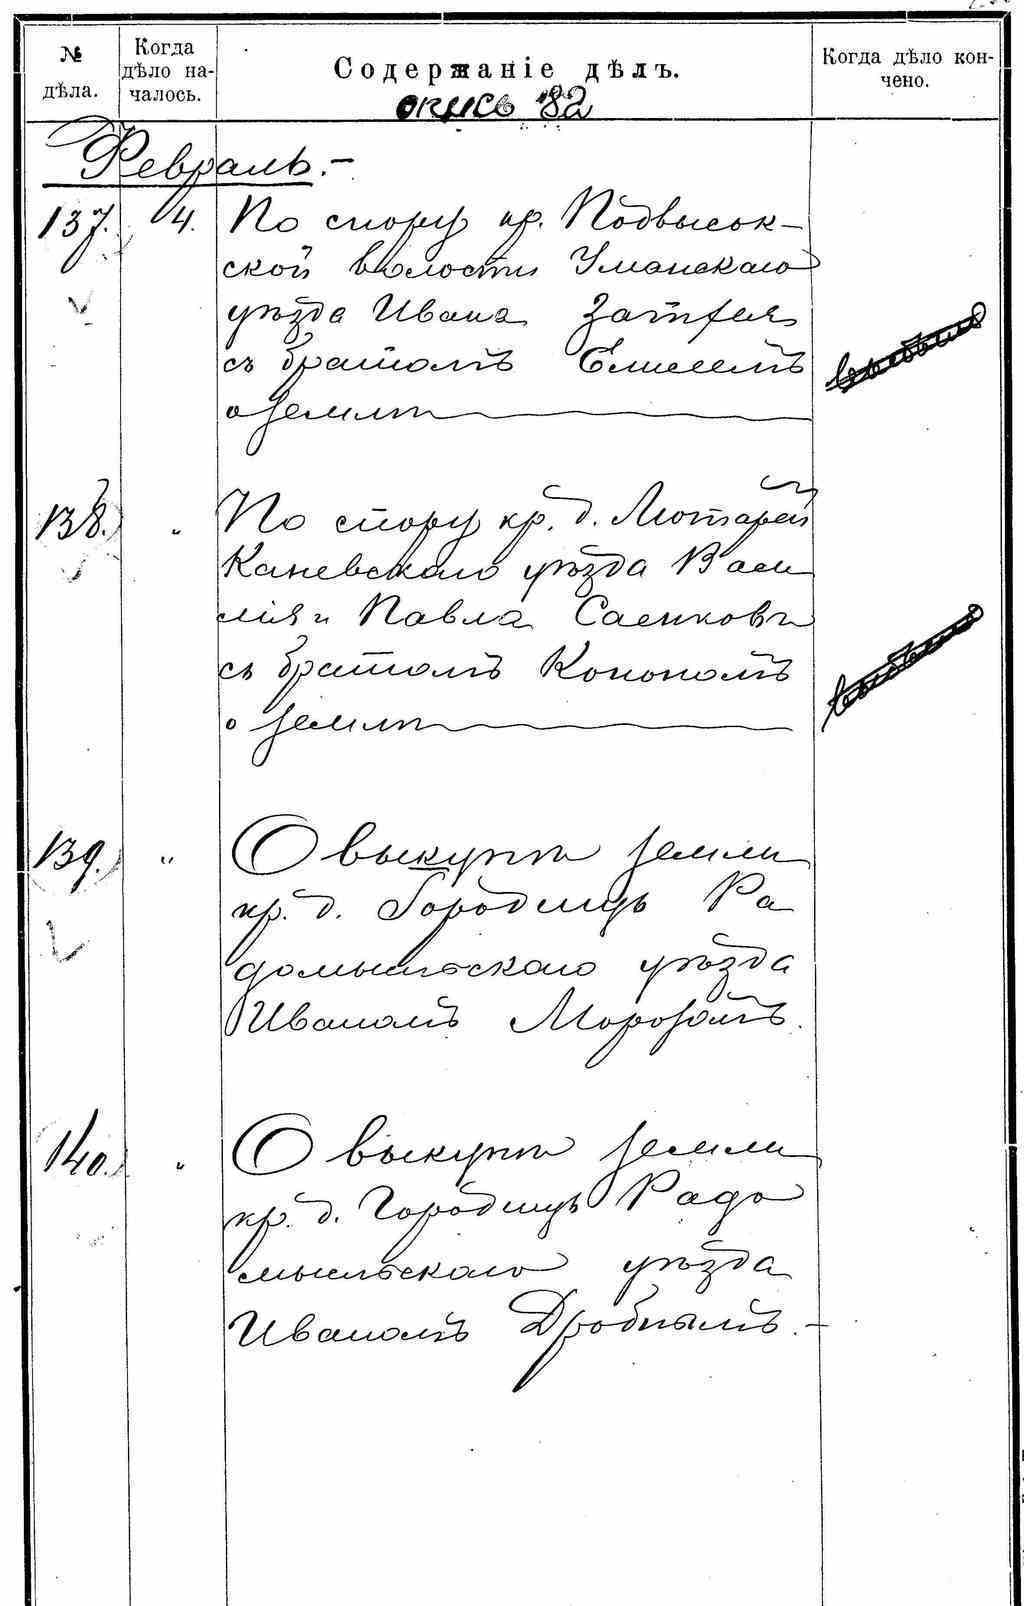 № дѣла.
Когда дѣло на-чалось.
Содержаніе дѣлъ.
Когда дѣло кон-чено.
опись 82
Февраль.-
137. 4. По спору кр. Подвысок-
ской волости Уманскаго
уѣзда Ивана
съ братомъ Елисеемъ
о землѣ
138. " По спору кр. д. Мотарей
Каневскаго уѣзда Васи
лія и Павла Саенковъ
съ братомъ Конономъ
о землѣ
139. " О выкупѣ земли
кр. д. Городищъ Ра
домысльскаго уѣзда
Иваномъ Морозомъ.
140. " О выкупѣ земли
кр. д. Городищъ Радо
мысльскаго уѣзда
Иваномъ Дробнымъ.-